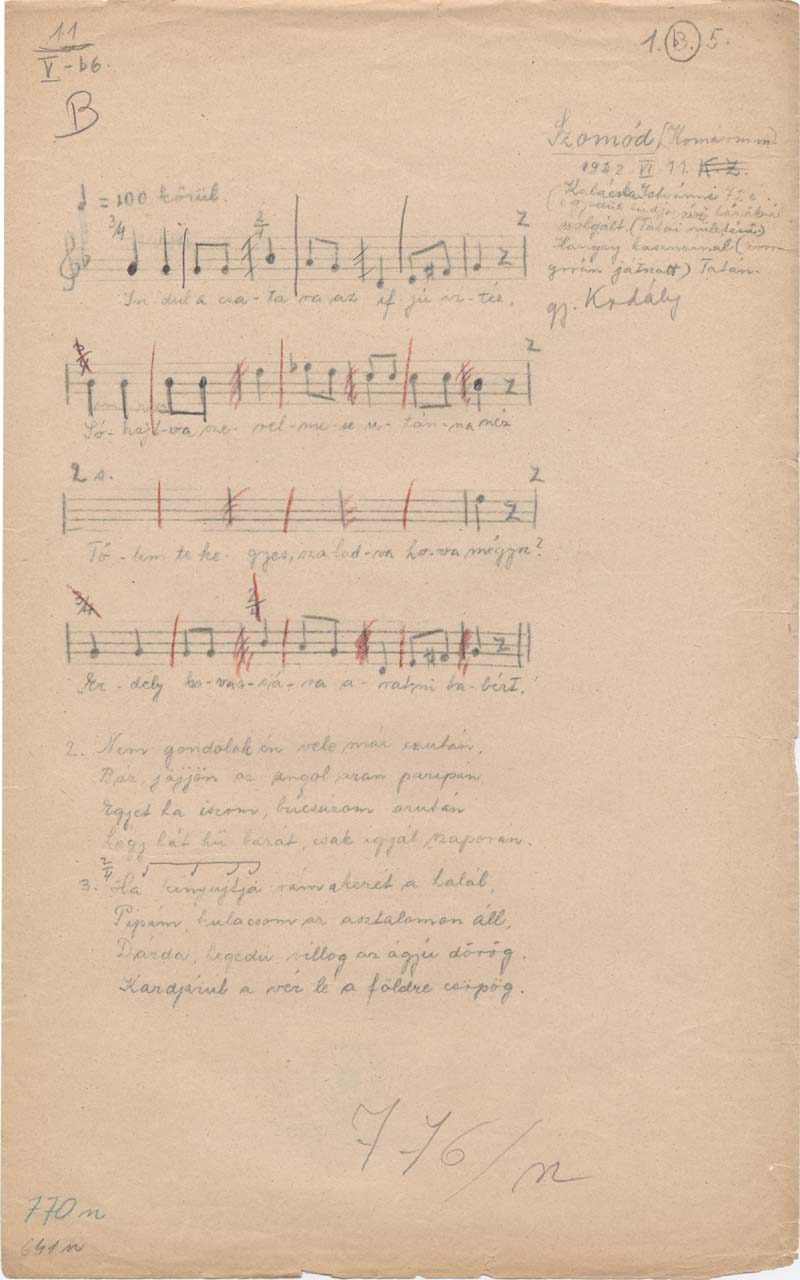 11
V-b6.
B
1. B. 5.
Szomód (Komárom m.)
1922 VI. 11. K. Z.
Kalácska Istvánné 72 é.
szolgált. (Tatai születésű)
Tatán.
gy. Kodály
♩ = 100 körül.
3/4 2/4 2
In dul a csa-ta ra az if-jú vi-téz,
3/4 2
Só-hajt-va sze-rel-me-se u-tán-na néz
2 s. 2
Tő-lem te ke-gyes, sza lad-va ho-va mégysz?
3/4 2/4
Er-dély ha-vas-sá-ra a-rat-ni ba-bért.
2. Nem gondolok én vele már ezután,
Bár jöjjön az angol paripán
Egyet ha iszom, búcsúzom azután
hogy hát hű barát, csak igyál szaporán.
2/4
3. Ha kinyujtja rám a kezét a halál,
Pipám, kulacsom az asztalomon áll,
Dárda, hegedű villog az ágyú dörög.
Kardjárul a vér le a földre csöpög.
776/n
770 n
641 n